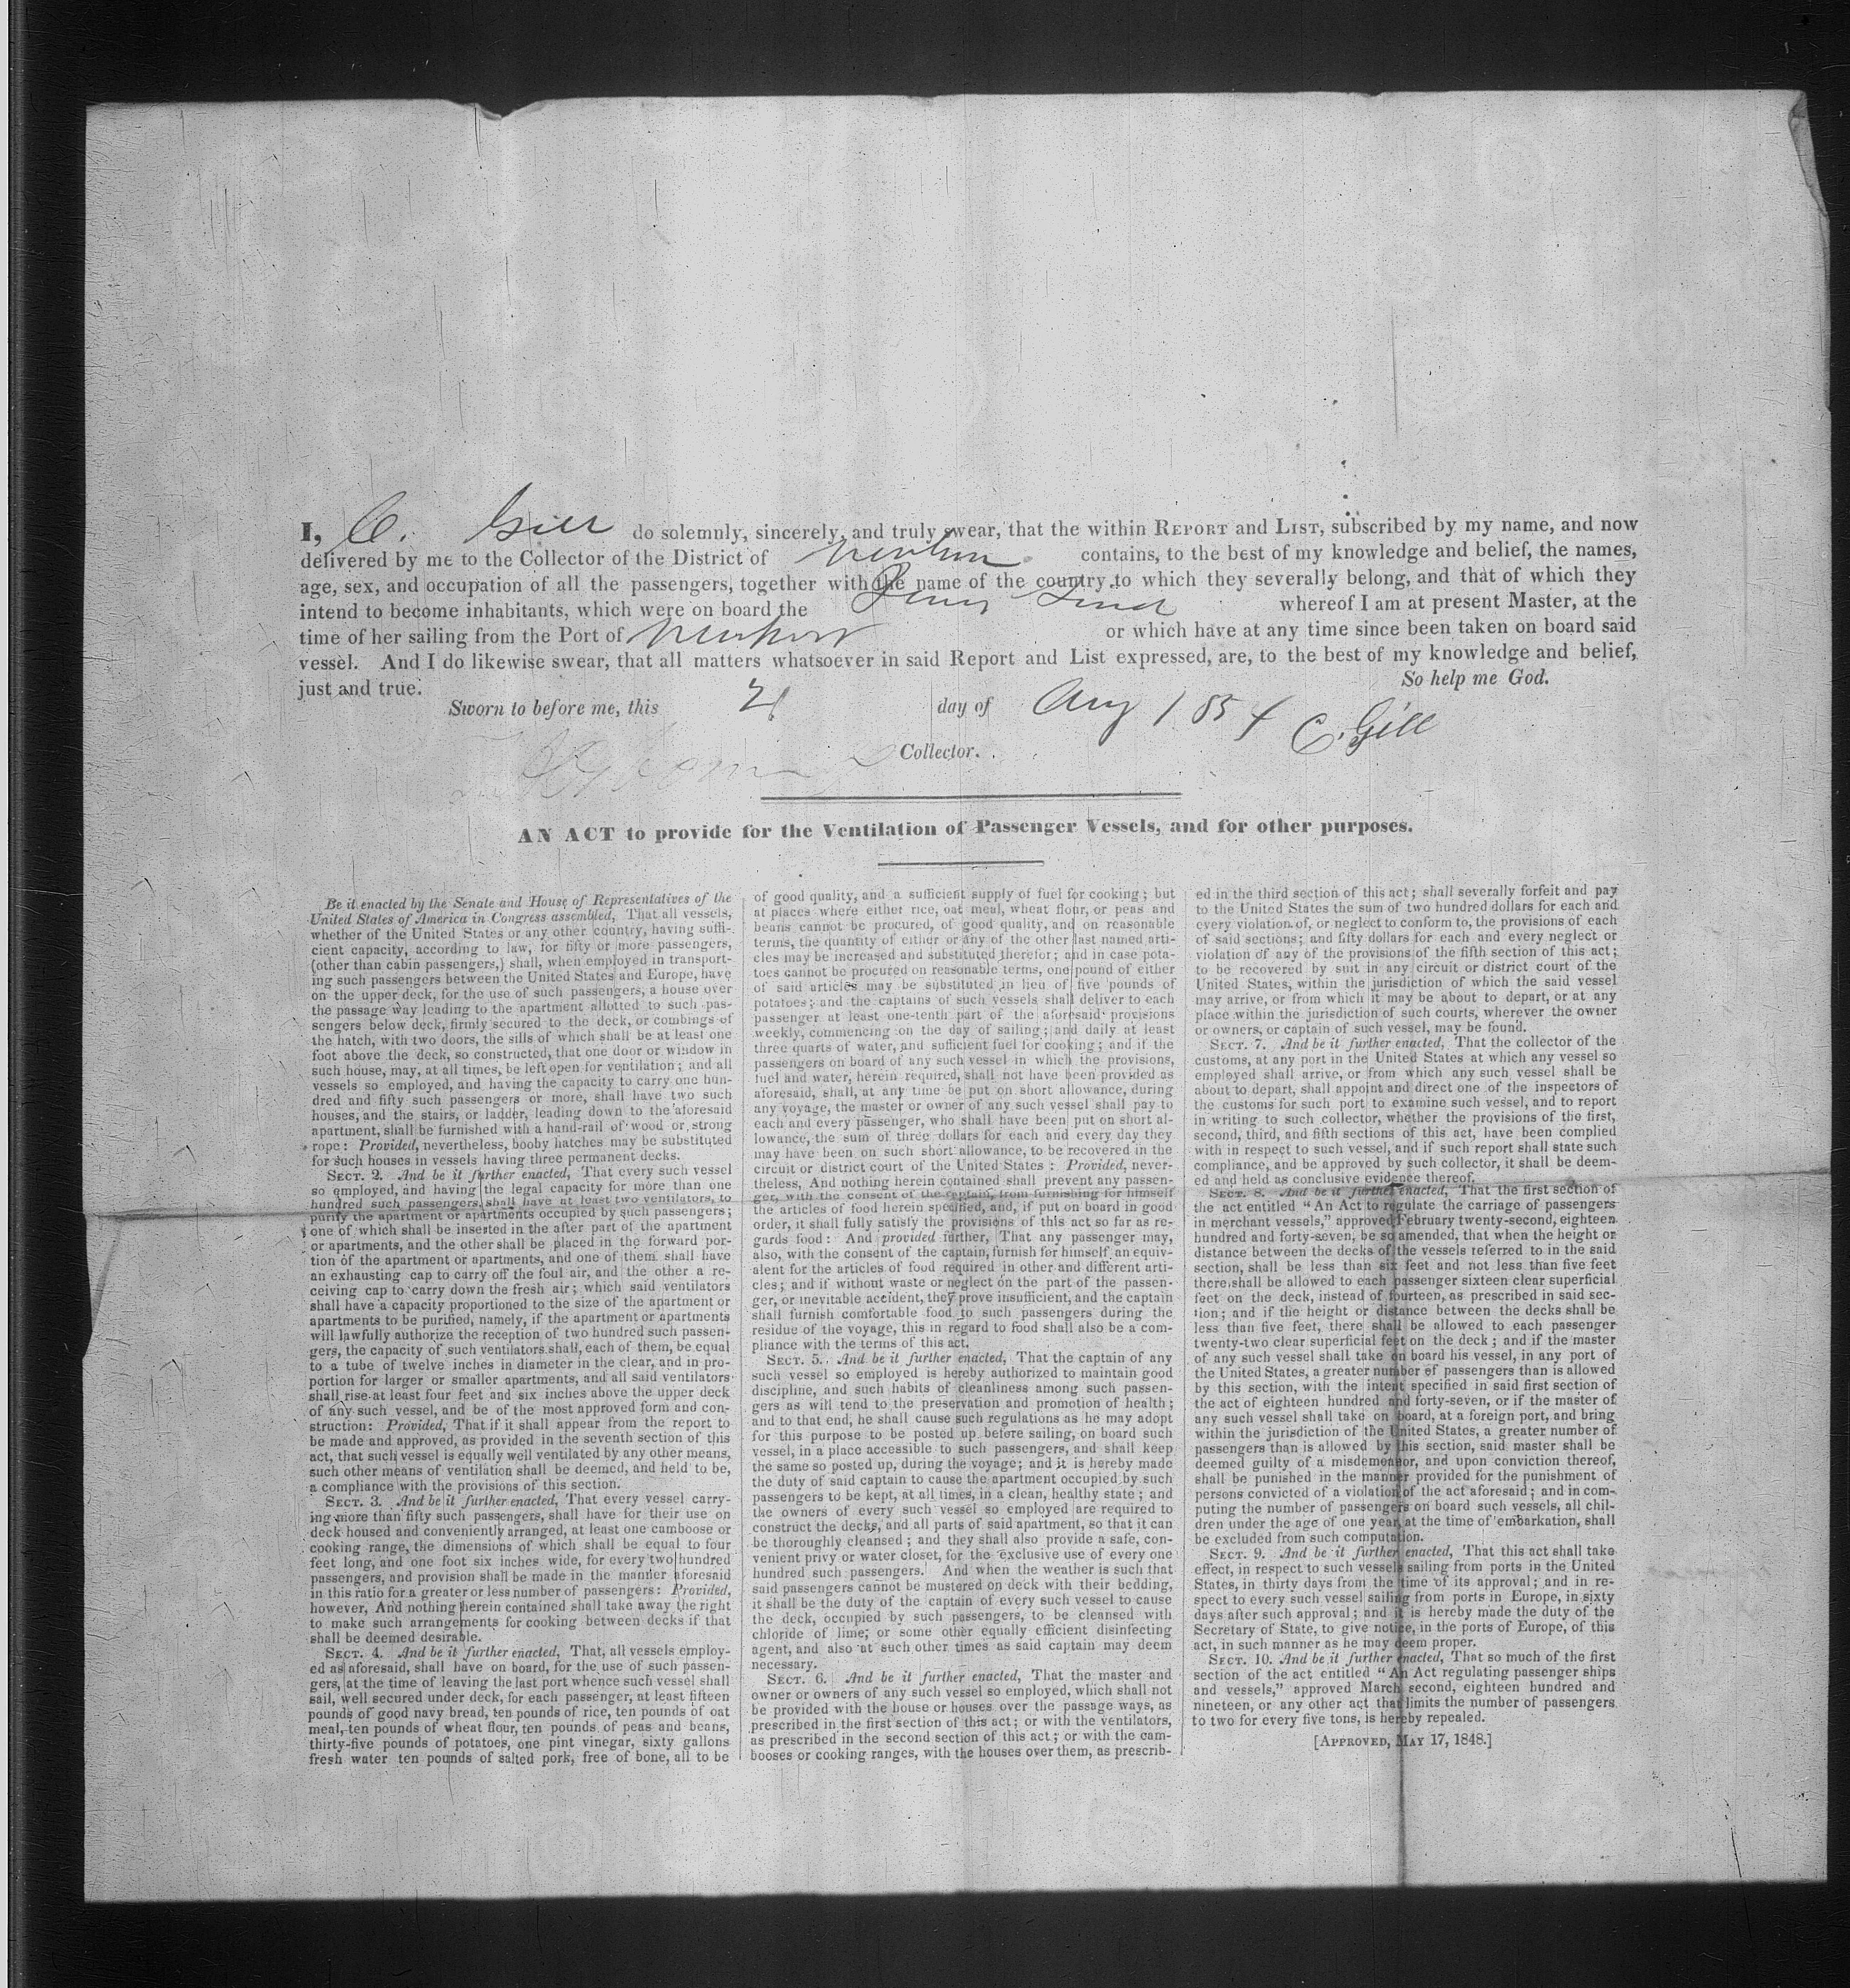 I, C. Gill do solemnly, sincerely, and truly swear, that the within REPORT and LIST, subscribed by my name, and now
delivered by me to the Collector of the District of contains, to the best of my knowledge and belief, the names,
age, sex, and occupation of all the passengers, together with the name of the country to which they severally belong, and that of which they
intend to become inhabitants, which were on board the Jenny Lind whereof I am at present Master, at the
time of her sailing from the Port of Newport or which have at any time since been taken on board said
vessel. And I do likewise swear, that all matters whatsoever in said Report and List expressed, are, to the best of my knowledge and belief,
just and true. So help me God.
Sworn to before me, this day of Aug 1854 C. Gill
Collector.
AN ACT to provide for the Ventilation of Passenger Vessels, and for other purposes.
Be it enacted by the Senate and House of Representatives of the
United States of America in Congress assembled, That all vessels,
whether of the United States or any other country, having suffi-
cient capacity, according to law, for fifty or more passengers,
(other than cabin passengers,) shall, when employed in transport-
ing such passengers between the United States and Europe, have
on the upper deck, for the use of such passengers, a house over
the passage way leading to the apartment allotted to such pas-
sengers below deck, firmly secured to the deck, or combings of
the hatch, with two doors, the sills of which shall be at least one
foot above the deck, so constructed, that one door or window in
such house, may, at all times, be left open for ventilation; and all
vessels so employed, and having the capacity to carry one hun-
dred and fifty such passengers or more, shall have two such
houses, and the stairs, or ladder, leading down to the aforesaid
apartment, shall be furnished with a hand-rail of wood or strong
rope: Provided, nevertheless, booby hatches may be substituted
for such houses in vessels having three permanent decks.
SECT. 2. And be it further enacted, That every such vessel
so employed, and having the legal capacity for more than one
hundred such passengers, shall have at least two ventilators, to
purify the apartment or apartments occupied by such passengers;
one of which shall be inserted in the after part of the apartment
or apartments, and the other shall be placed in the forward por-
tion of the apartment or apartments, and one of them shall have
an exhausting cap to carry off the foul air, and the other a re-
ceiving cap to carry down the fresh air; which said ventilators
shall have a capacity proportioned to the size of the apartment or
apartments to be purified, namely, if the apartment or apartments
will lawfully authorize the reception of two hundred such passen-
gers, the capacity of such ventilators shall, each of them, be equal
to a tube of twelve inches in diameter in the clear, and in pro-
portion for larger or smaller apartments, and all said ventilators
shall rise at least four feet and six inches above the upper deck
of any such vessel, and be of the most approved form and con-
struction: Provided, That if it shall appear from the report to
be made and approved, as provided in the seventh section of this
act, that such vessel is equally well ventilated by any other means,
such other means of ventilation shall be deemed, and held to be,
a compliance with the provisions of this section.
SECT. 3. And be it further enacted, That every vessel carry-
ing more than fifty such passengers, shall have for their use on
deck housed and conveniently arranged, at least one camboose or
cooking range, the dimensions of which shall be equal to four
feet long, and one foot six inches wide, for every two hundred
passengers, and provision shall be made in the manner aforesaid
in this ratio for a greater or less number of passengers: Provided,
however, And nothing herein contained shall take away the right
to make such arrangements for cooking between decks if that
shall be deemed desirable.
SECT. 4. And be it further enacted, That, all vessels employ-
ed as aforesaid, shall have on board, for the use of such passen-
gers, at the time of leaving the last port whence such vessel shall
sail, well secured under deck, for each passenger, at least fifteen
pounds of good navy bread, ten pounds of rice, ten pounds of oat
meal, ten pounds of wheat flour, ten pounds of peas and beans,
thirty-five pounds of potatoes, one pint vinegar, sixty gallons
fresh water ten pounds of salted pork, free of bone, all to be
of good quality, and a sufficient supply of fuel for cooking; but
at places where either rice, oat meal, wheat flour, or peas and
beans cannot be procured, of good quality, and on reasonable
terms, the quantity of either or any of the other last named arti-
cles may be increased and substituted therefor; and in case pota-
toes cannot be procured on reasonable terms, one pound of either
of said articles may be substituted in lieu of five pounds of
potatoes; and the captains of such vessels shall deliver to each
passenger at least one-tenth part of the aforesaid provisions
weekly, commencing on the day of sailing; and daily at least
three quarts of water, and sufficient fuel for cooking; and if the
passengers on board of any such vessel in which the provisions,
fuel and water, herein required, shall not have been provided as
aforesaid, shall, at any time be put on short allowance, during
any voyage, the master or owner of any such vessel shall pay to
each and every passenger, who shall have been put on short al-
lowance, the sum of three dollars for each and every day they
may have been on such short allowance, to be recovered in the
circuit or district court of the United States: Provided, never-
theless, And nothing herein contained shall prevent any passen-
ger, with the consent of the captain, from furnishing for himself
the articles of food herein specified, and, if put on board in good
order, it shall fully satisfy the provisions of this act so far as re-
gards food: And provided further, That any passenger may,
also, with the consent of the captain, furnish for himself an equiv-
alent for the articles of food required in other and different arti-
cles; and if without waste or neglect on the part of the passen-
ger, or inevitable accident, they prove insufficient, and the captain
shall furnish comfortable food to such passengers during the
residue of the voyage, this in regard to food shall also be a com-
pliance with the terms of this act.
SECT. 5. And be it further enacted, That the captain of any
such vessel so employed is hereby authorized to maintain good
discipline, and such habits of cleanliness among such passen-
gers as will tend to the preservation and promotion of health;
and to that end, he shall cause such regulations as he may adopt
for this purpose to be posted up before sailing, on board such
vessel, in a place accessible to such passengers, and shall keep
the same so posted up, during the voyage; and it is hereby made
the duty of said captain to cause the apartment occupied by such
passengers to be kept, at all times, in a clean, healthy state; and
the owners of every such vessel so employed are required to
construct the decks, and all parts of said apartment, so that it can
be thoroughly cleansed; and they shall also provide a safe, con-
venient privy or water closet, for the exclusive use of every one
hundred such passengers. And when the weather is such that
said passengers cannot be mustered on deck with their bedding,
it shall be the duty of the captain of every such vessel to cause
the deck, occupied by such passengers, to be cleansed with
chloride of lime, or some other equally efficient disinfecting
agent, and also at such other times as said captain may deem
necessary.
SECT. 6. And be it further enacted, That the master and
owner or owners of any such vessel so employed, which shall not
be provided with the house or houses over the passage ways, as
prescribed in the first section of this act; or with the ventilators,
as prescribed in the second section of this act; or with the cam-
booses or cooking ranges, with the houses over them, as prescrib-
ed in the third section of this act; shall severally forfeit and pay
to the United States the sum of two hundred dollars for each and
every violation of, or neglect to conform to, the provisions of each
of said sections; and fifty dollars for each and every neglect or
violation of any of the provisions of the fifth section of this act;
to be recovered by suit in any circuit or district court of the
United States, within the jurisdiction of which the said vessel
may arrive, or from which it may be about to depart, or at any
place within the jurisdiction of such courts, wherever the owner
or owners, or captain of such vessel, may be found.
SECT. 7. And be it further enacted, That the collector of the
customs, at any port in the United States at which any vessel so
employed shall arrive, or from which any such vessel shall be
about to depart, shall appoint and direct one of the inspectors of
the customs for such port to examine such vessel, and to report
in writing to such collector, whether the provisions of the first,
second, third, and fifth sections of this act, have been complied
with in respect to such vessel, and if such report shall state such
compliance, and be approved by such collector, it shall be deem-
ed and held as conclusive evidence thereof.
SECT. 8. And be it further enacted, That the first section of
the act entitled "An Act to regulate the carriage of passengers
in merchant vessels," approved February twenty-second, eighteen
hundred and forty-seven, be so amended, that when the height or
distance between the decks of the vessels referred to in the said
section, shall be less than six feet and not less than five feet
there shall be allowed to each passenger sixteen clear superficial
feet on the deck, instead of fourteen, as prescribed in said sec-
tion; and if the height or distance between the decks shall be
less than five feet, there shall be allowed to each passenger
twenty-two clear superficial feet on the deck; and if the master
of any such vessel shall take on board his vessel, in any port of
the United States, a greater number of passengers than is allowed
by this section, with the intent specified in said first section of
the act of eighteen hundred and forty-seven, or if the master of
any such vessel shall take on board, at a foreign port, and bring
within the jurisdiction of the United States, a greater number of
passengers than is allowed by this section, said master shall be
deemed guilty of a misdemeanor, and upon conviction thereof,
shall be punished in the manner provided for the punishment of
persons convicted of a violation of the act aforesaid; and in com-
puting the number of passengers on board such vessels, all chil-
dren under the age of one year, at the time of embarkation, shall
be excluded from such computation.
SECT. 9. And be it further enacted, That this act shall take
effect, in respect to such vessels sailing from ports in the United
States, in thirty days from the time of its approval; and in re-
spect to every such vessel sailing from ports in Europe, in sixty
days after such approval; and it is hereby made the duty of the
Secretary of State, to give notice, in the ports of Europe, of this
act, in such manner as he may deem proper.
SECT. 10. And be it further enacted, That so much of the first
section of the act entitled "An Act regulating passenger ships
and vessels," approved March second, eighteen hundred and
nineteen, or any other act that limits the number of passengers
to two for every five tons, is hereby repealed.
[APPROVED, MAY 17, 1848.]